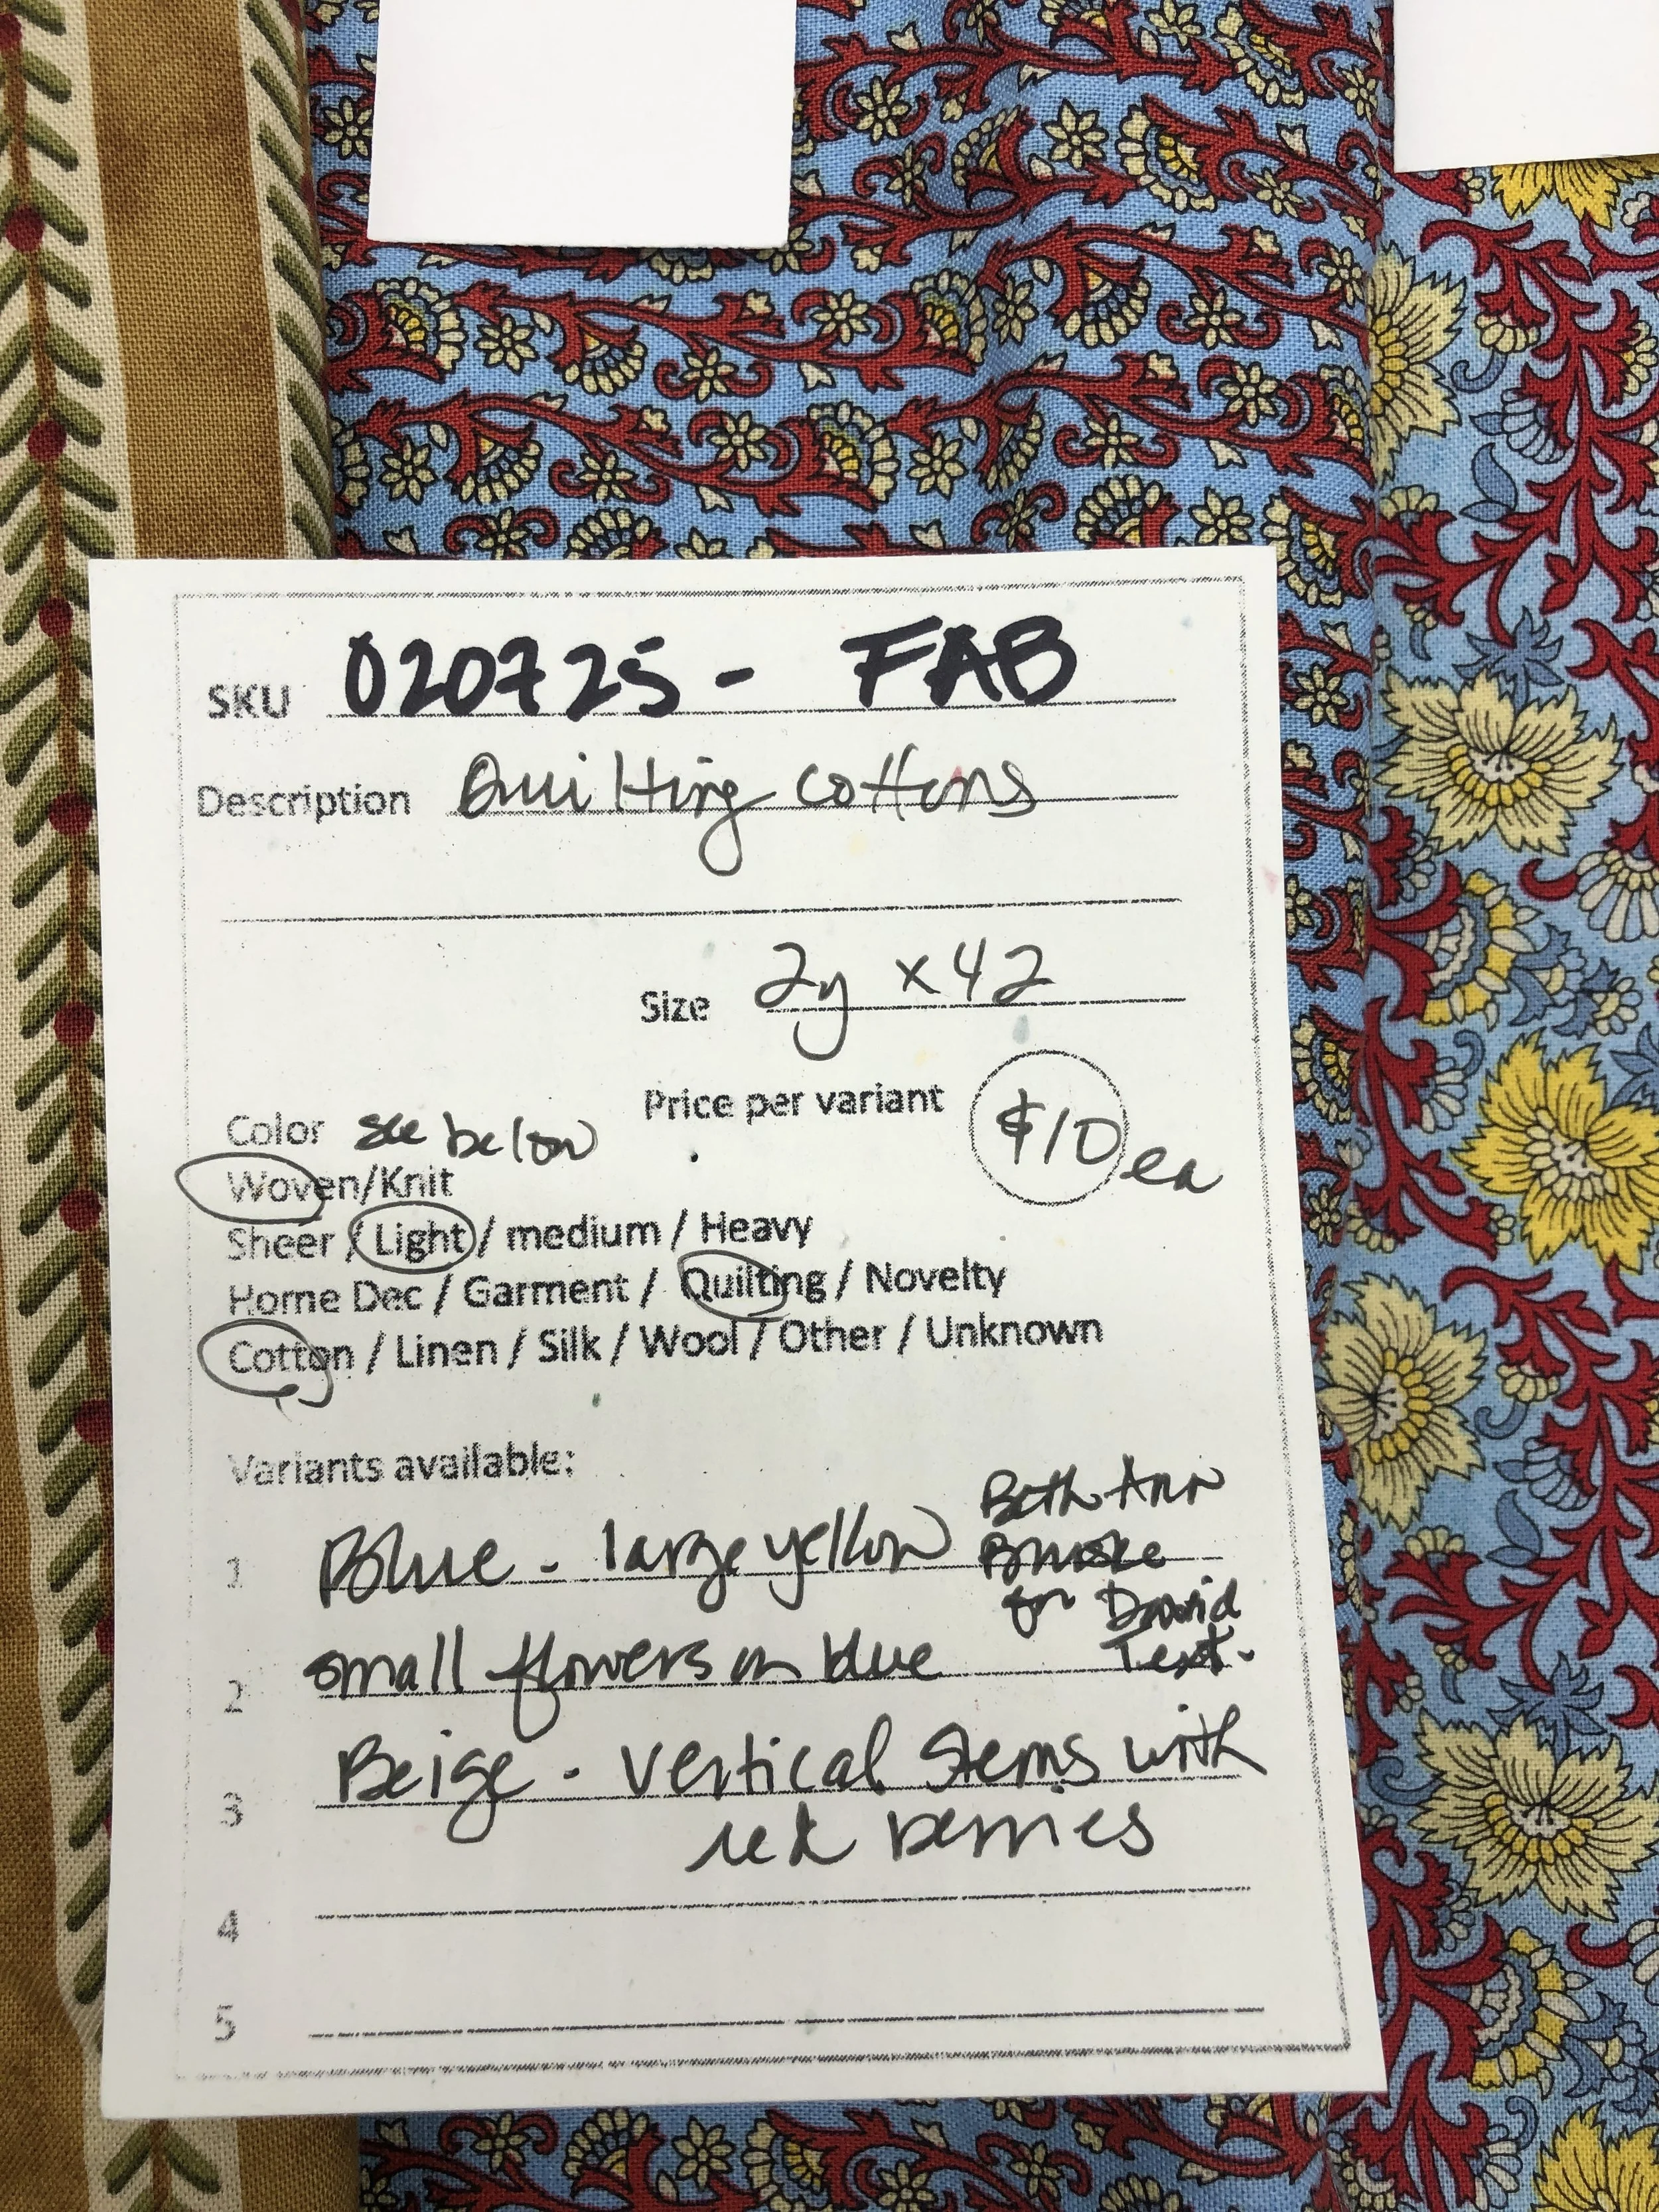 SKU 020725 - FAB
Description Quilting cottons
Size 2y x 42
Price per variant $10 ea
Color see below
Woven/Knit
Sheer / Light / medium / Heavy
Home Dec / Garment / Quilting / Novelty
Cotton / Linen / Silk / Wool / Other / Unknown
Variants available:
Beth Ann
1 Blue - large yellow
for David
Text.
2 small flowers on blue
3 Beige - vertical stems with
red berries
4
5